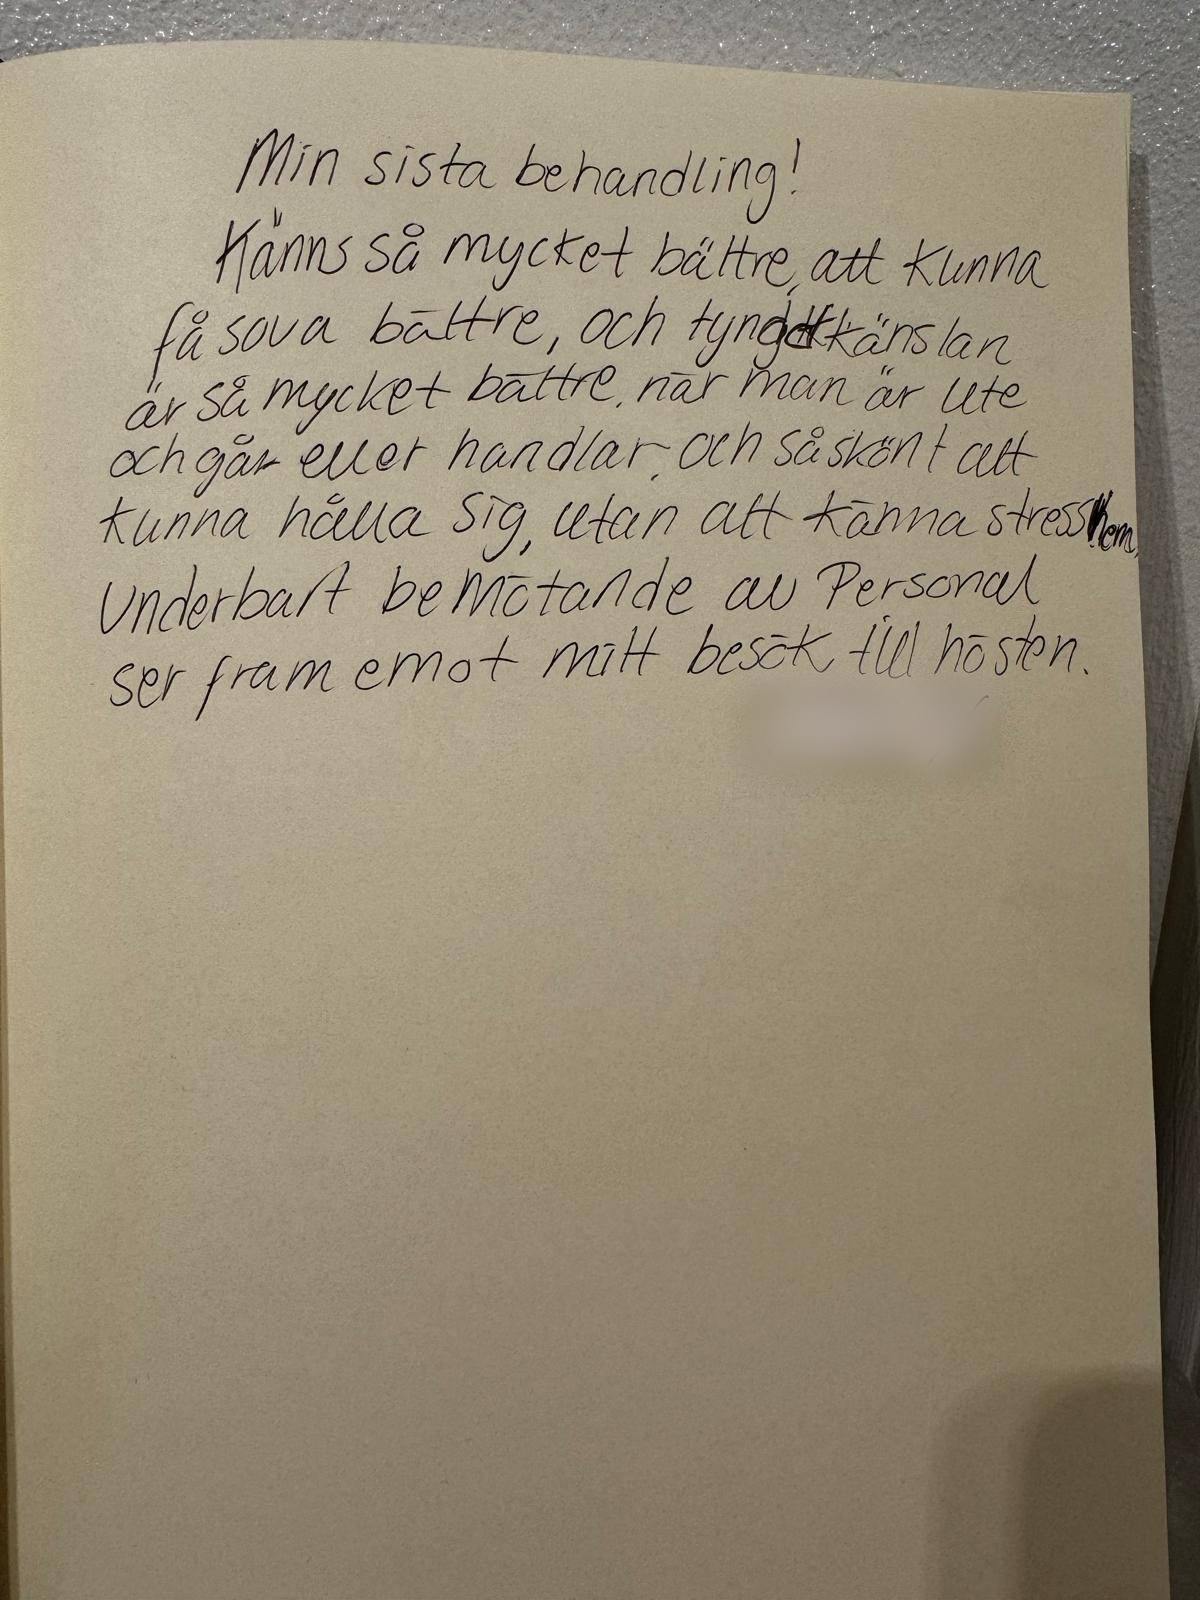 Min sista behandling!
Känns så mycket bättre, att kunna
få sova bättre, och tyngdkänslan
är så mycket bättre, när man är ute
och går eller handlar, och så skönt att
kunna hålla sig, utan att känna stress hem.
Underbart bemötande av Personal
ser fram emot mitt besök till hösten.